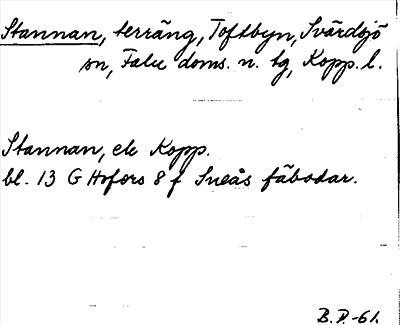 Stannan, terräng, Toftbyn, Svärdsjö
sn, Falu doms. n. tg, Kopp. l.
Stannan, ek Kopp.
bl. 13 G Hofors 8 f Sneås fäbodar.
B.P.-61.